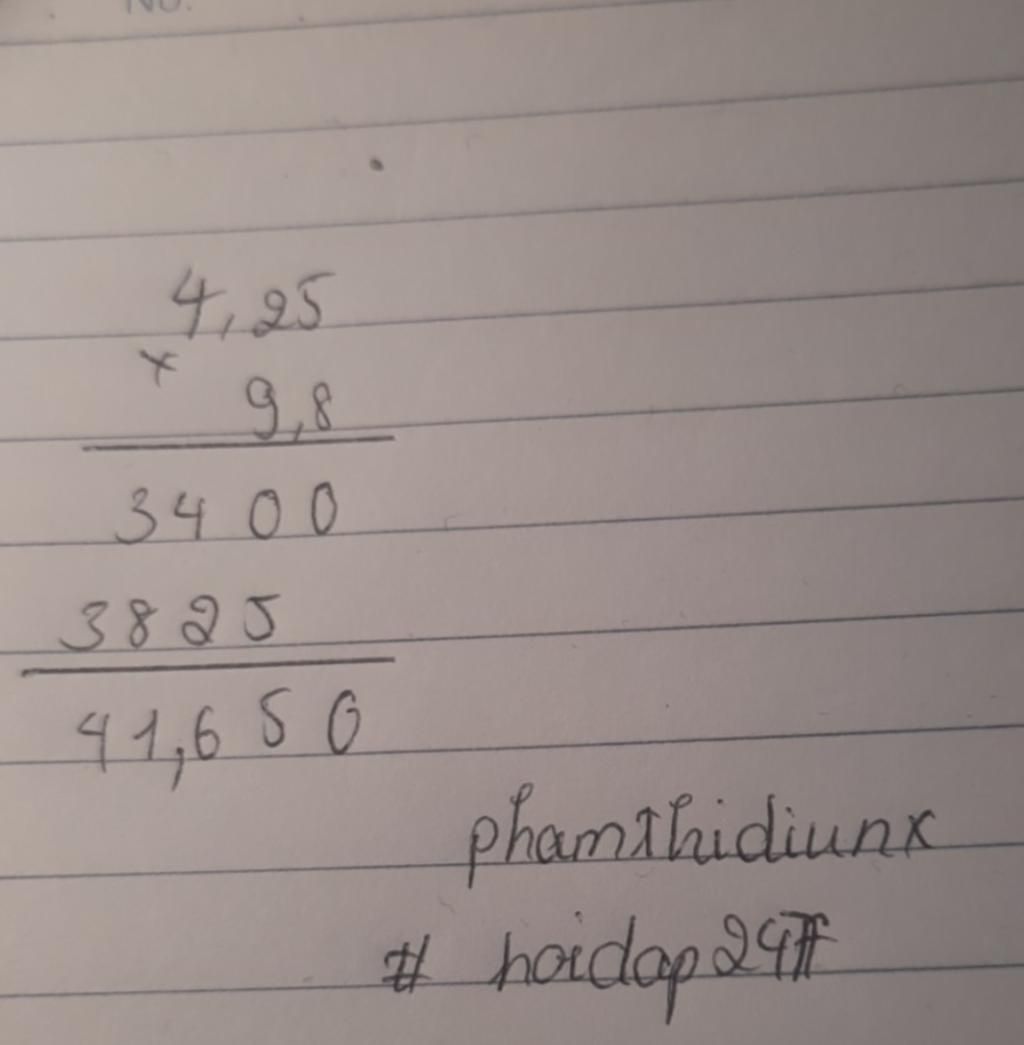 No.
4,25
x
9,8
3400
3825
41,650
phamthidiunx
# hoidap247